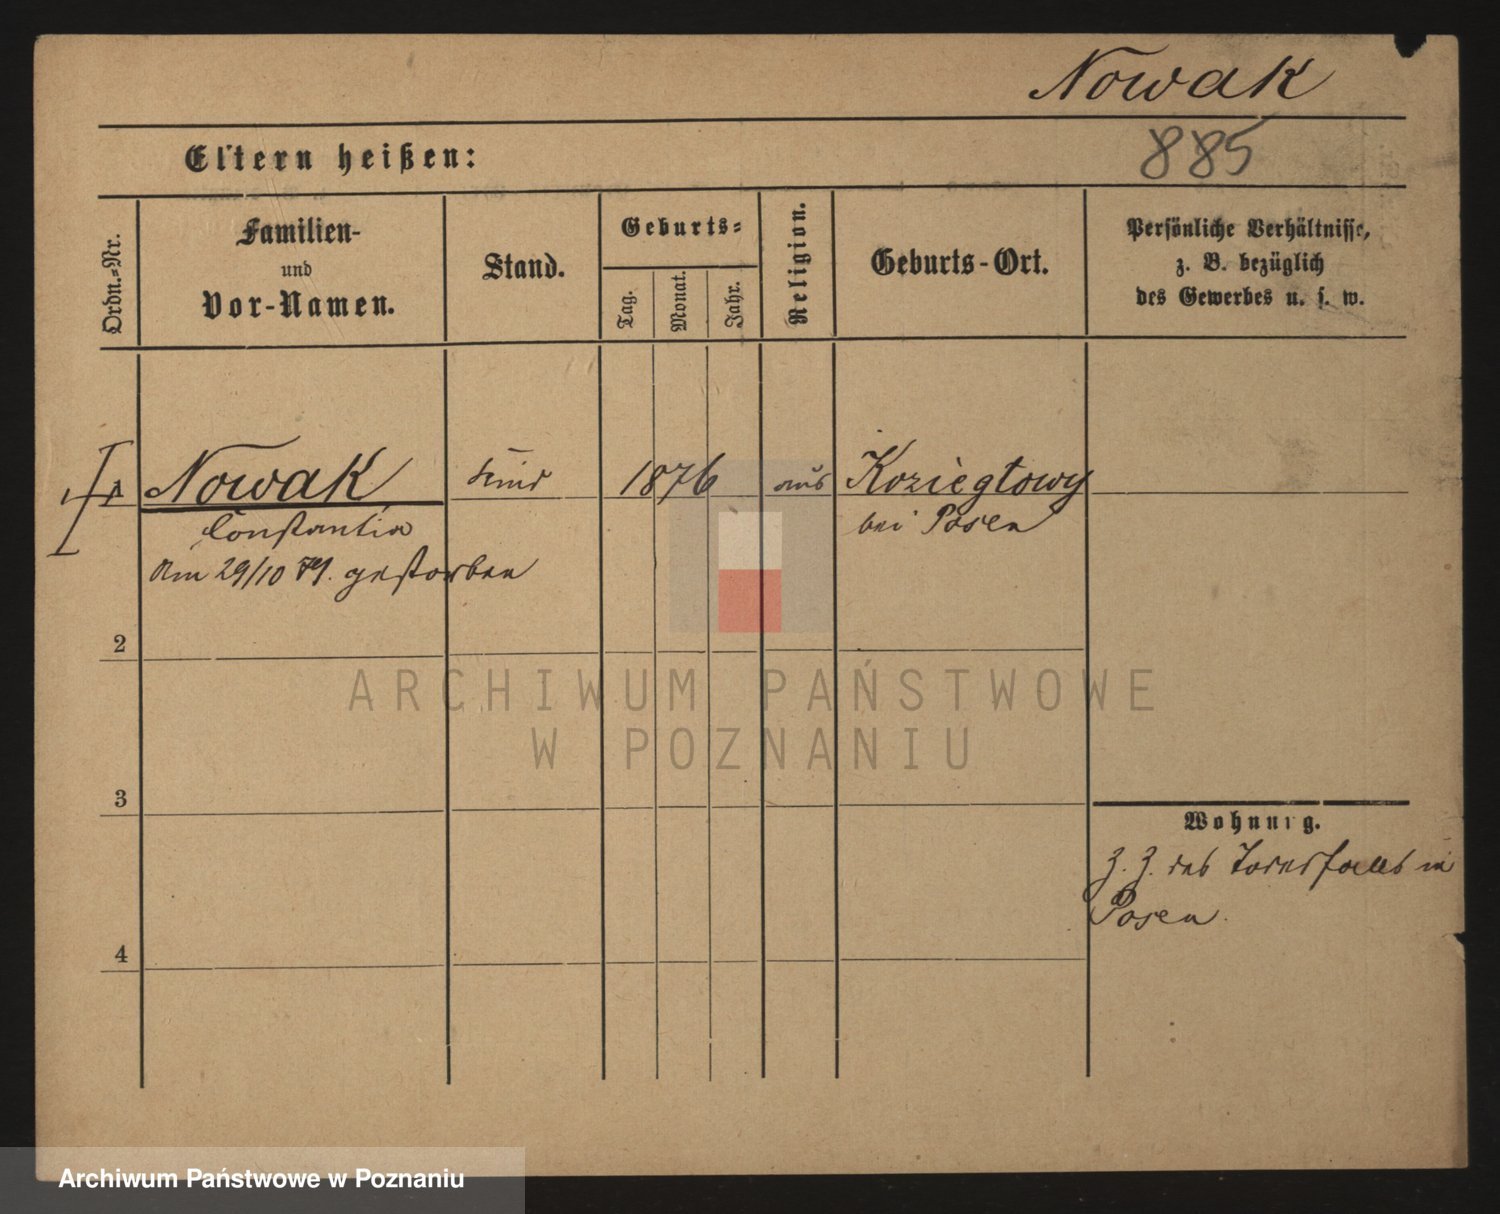 Nowak
Eltern heißen:
885
Ordn.-Nr.
Familien-
und
Vor-Namen.
Stand.
Geburts-
Tag.
Monat.
Jahr.
Religion.
Geburts-Ort.
Persönliche Verhältnisse,
z. B. bezüglich
des Gewerbes u. s. w.
Nowak
Kind
1876
aus
Koziegłowy
Constantia
bei Posen
Am 29/10 79. gestorben
2
ARCHIWUM PAŃSTWOWE
W POZNANIU
3
Wohnung.
z. Z. des Todesfalles in
Posen.
4
Archiwum Państwowe w Poznaniu